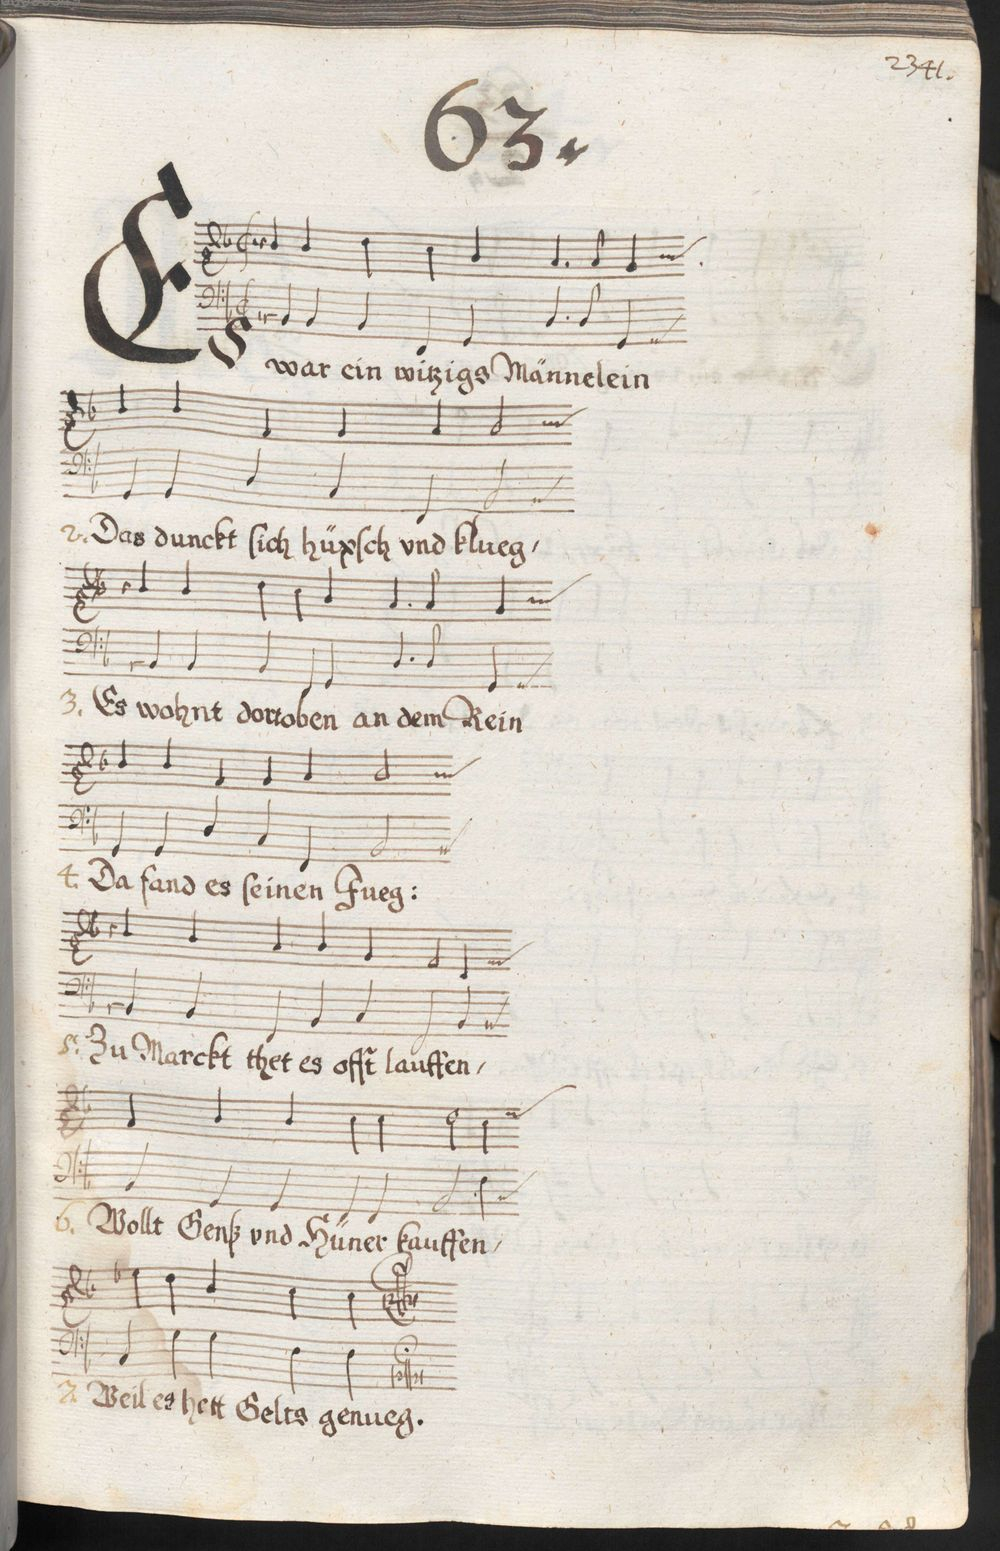 2341.
63.
Es war ein witzigs Männelein
2. Das dunckt sich hüpsch vnd klueg,
3. Es wohnt dortoben an dem Rein
4. Da fand es seinen Fueg:
5. Zu Marckt thet es offt lauffen,
6. Wollt Genß vnd Hüner kauffen,
7. Weil es hett Gelts genueg.